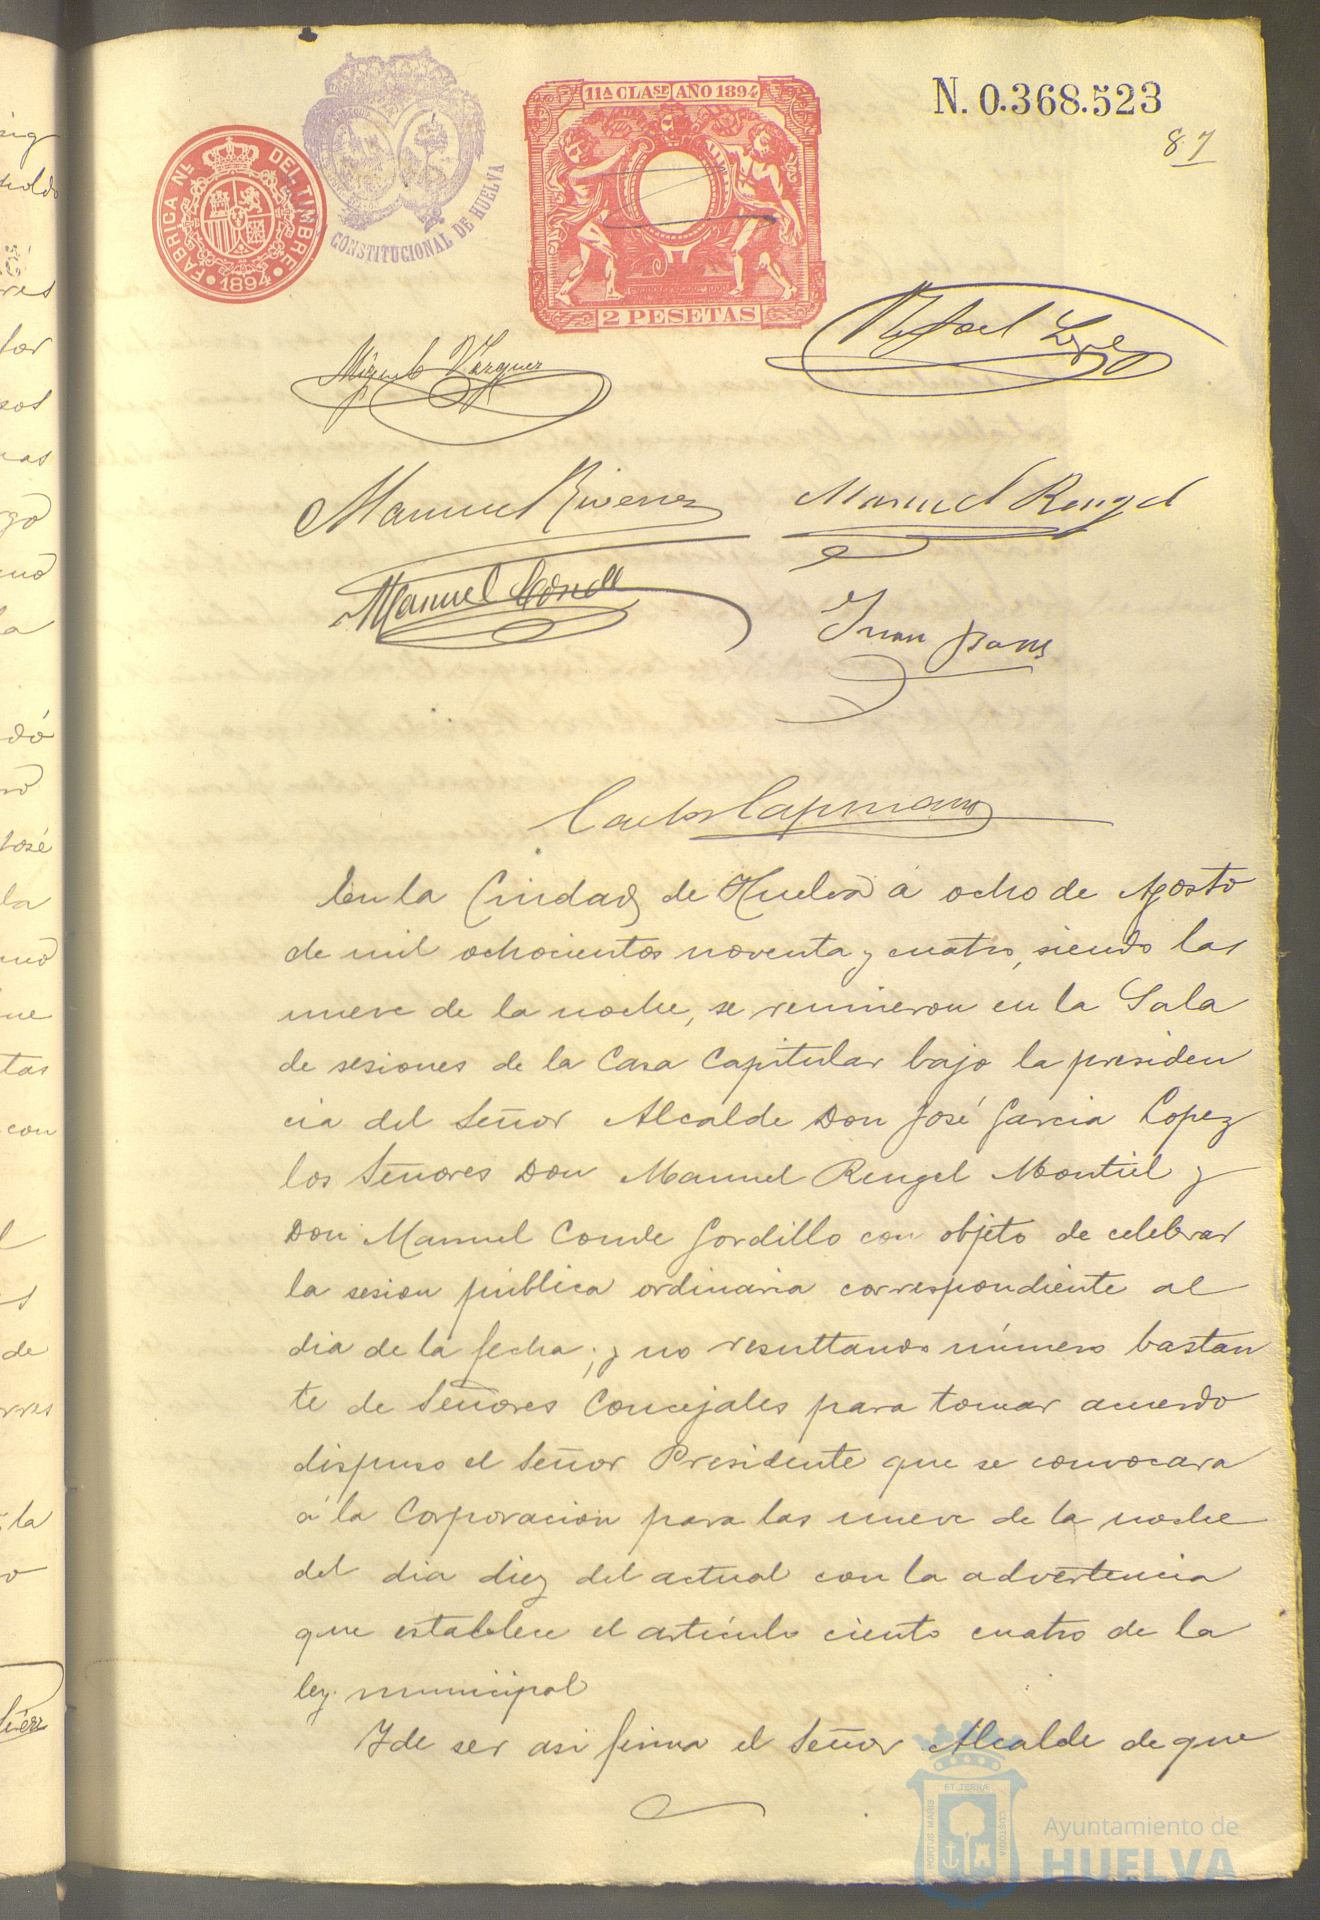 N. 0.368.523
87
11ª CLASE AÑO 1894
FABRICA Nl. DEL TIMBRE
1894
CONSTITUCIONAL DE HUELVA
2 PESETAS
Rafael Lopez
Miguel Vazquez
Manuel Rengel
Manuel Conde
Juan
En la Ciudad de Huelva á ocho de Agosto
de mil ochocientos noventa y cuatro, siendo las
nueve de la noche, se reunieron en la Sala
de sesiones de la Casa Capitular bajo la presiden
cia del Señor Alcalde Don José Garcia Lopez
los Señores Don Manuel Rengel Montiel y
Don Manuel Conde Gordillo con objeto de celebrar
la sesion pública ordinaria correspondiente al
dia de la fecha; y no resultando número bastan
te de Señores Concejales para tomar acuerdo
dispuso el Señor Presidente que se convocara
á la Corporacion para las nueve de la noche
del dia diez del actual con la advertencia
que establece el artículo ciento cuatro de la
ley municipal
Y de ser asi firma el Señor Alcalde de que
PORTUS MARIS
ET TERRÆ
CUSTODIA
Ayuntamiento de
HUELVA